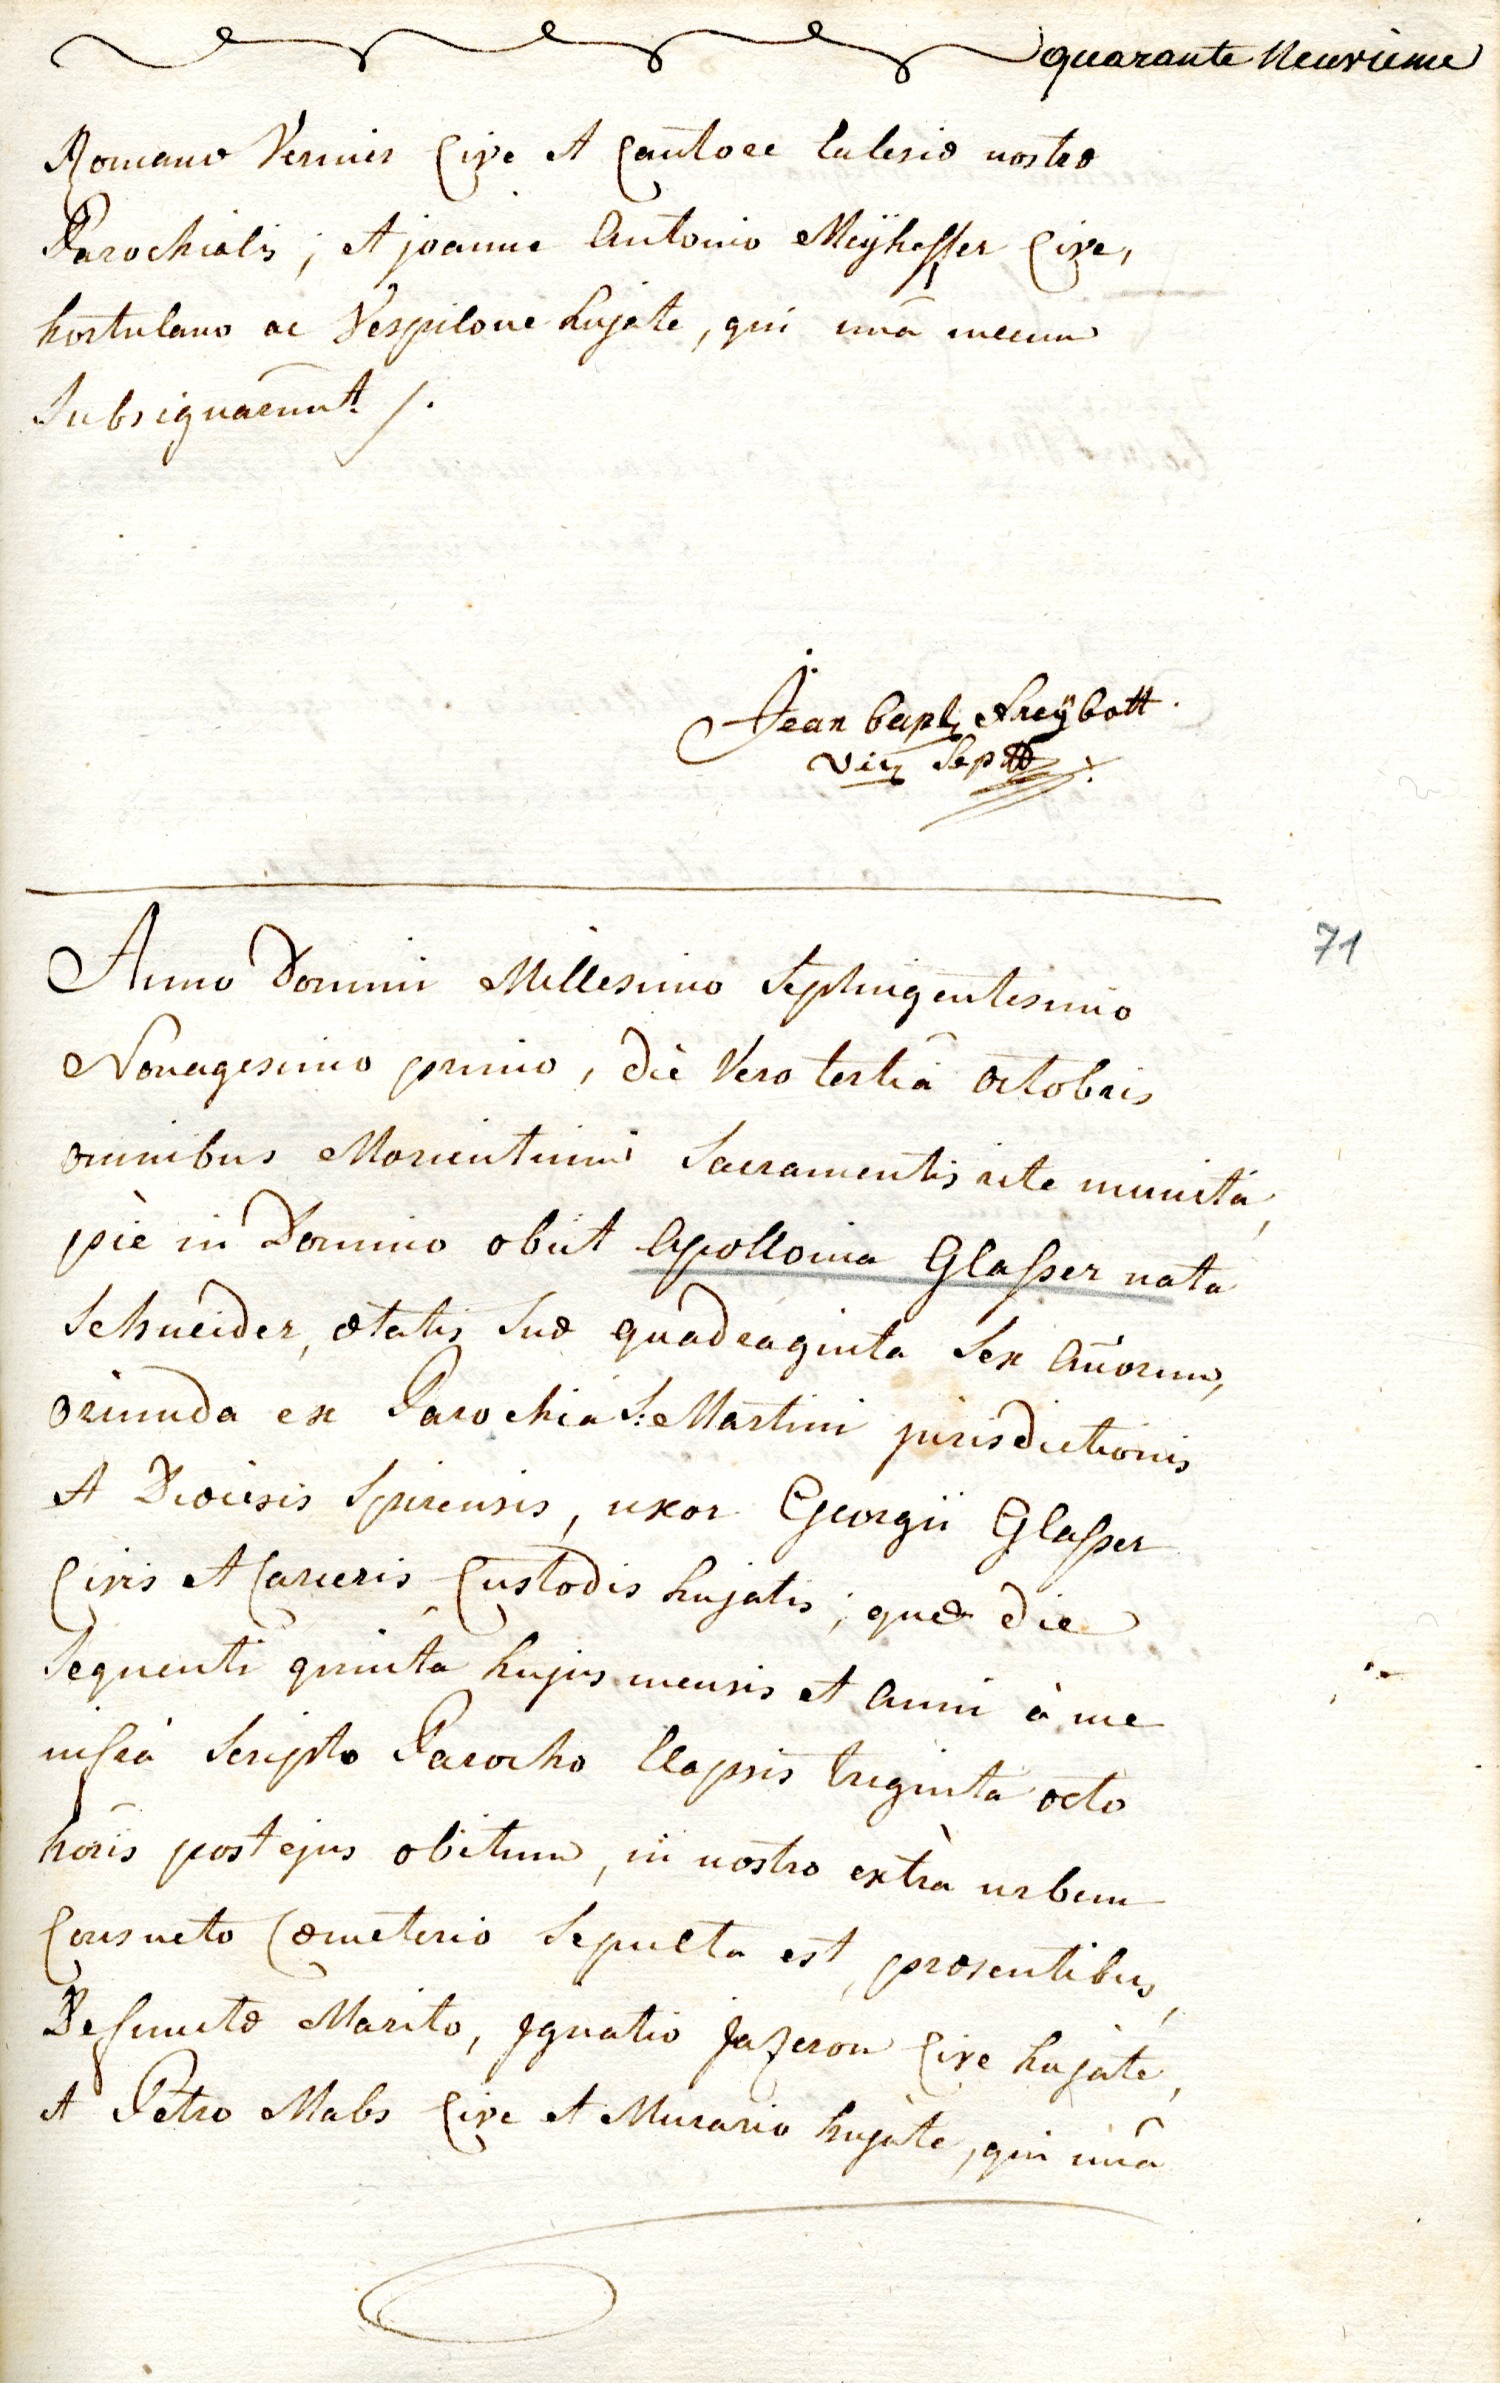 quarante Neuvième
Romano Vernier Cive et Cantore Eclesiæ nostræ
Parochialis, et joanne Antonio Meÿhoffer Cive,
hortulano ac Vespilone hujate, qui unâ mecum
Subsignarunt /.
Jean bapt Freÿbott.
Vic Sept
71
Anno Domini Millesimo Septingentesimo
Nonagesimo primo, die Vero tertiâ octobris
omnibus Morientium Sacramentis rite munita,
piè in Domino obiit Apollonia Glasser nata
Schneider, ætatis suæ quadraginta Sex Añorum,
oriunda ex Parochia S: Martini jurisdictionis
et Diœcisis Spirensis, uxor Georgii Glasser
Civis et Carceris Custodis hujatis; quæ die
Sequenti quinta hujus mensis et anni à me
infrà Scripto Parocho Elapsis triginta octo
horis post ejus obitum, in nostro extrà urbem
Consueto Cœmeterio Sepulta est, præsentibus,
Defunctæ Marito, Ignatio Jazeron Cive hujate,
et Petro Mabs Cive et Murario hujate, qui unâ